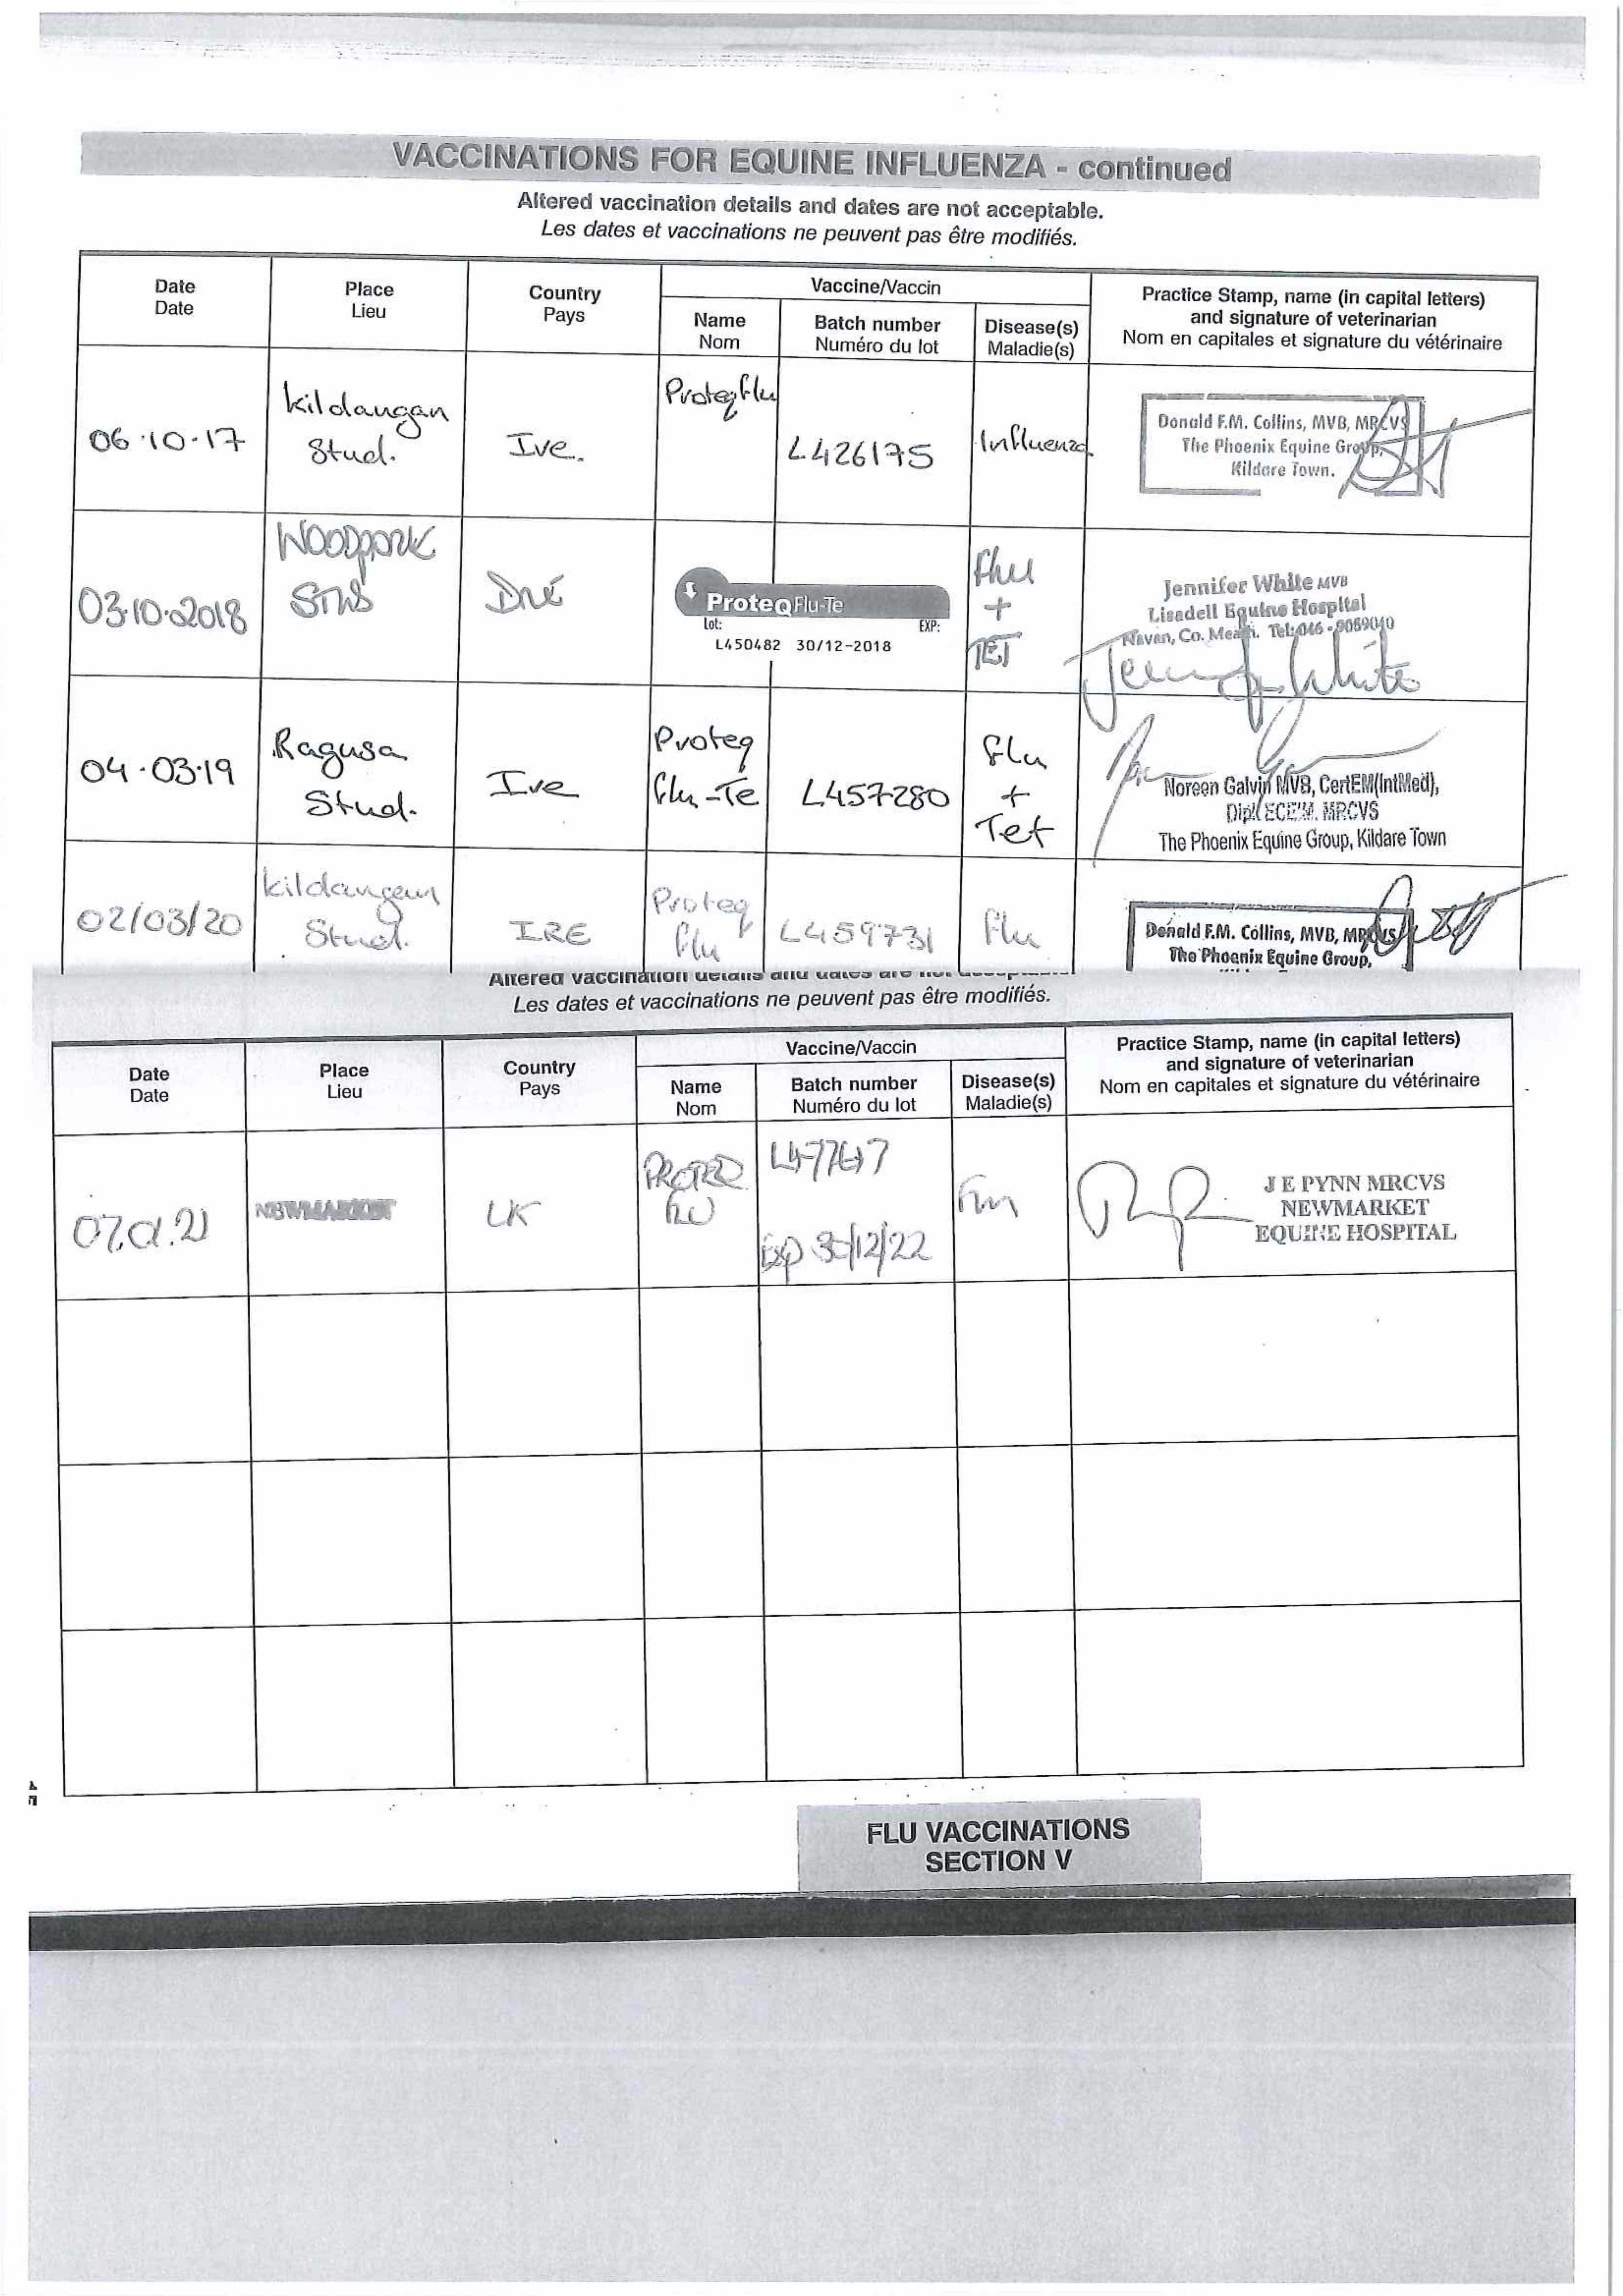 VACCINATIONS FOR EQUINE INFLUENZA - continued
Altered vaccination details and dates are not acceptable.
Les dates et vaccinations ne peuvent pas être modifiés.
Date
Date
Place
Lieu
Country
Pays
Vaccine/Vaccin
Name
Nom
Batch number
Numéro du lot
Disease(s)
Maladie(s)
Practice Stamp, name (in capital letters)
and signature of veterinarian
Nom en capitales et signature du vétérinaire
06.10.17
Kildangan
Stud.
Ire.
Proteqflu
L426175
Influenza
Donald F.M. Collins, MVB, MRCVS
The Phoenix Equine Group,
Kildare Town.
03.10.2018
WOODPARK
ProteqFlu-Te
Lot: EXP:
L450482 30/12-2018
Flu
+
TET
Jennifer White MVB
Lisadell Equine Hospital
Navan, Co. Meath. Tel: 046 - 9059040
Jennifer White
04.03.19
Ragusa
Stud.
Ire
Proteq
flu-Te
L457280
flu
+
Tet
Noreen Galvin MVB, CertEM(IntMed),
MRCVS
The Phoenix Equine Group, Kildare Town
02/03/20
Kildangan
Stud.
IRE
Proteq
flu
L459731
flu
Donald F.M. Collins, MVB, MRCVS
The Phoenix Equine Group,
Altered vaccination details and dates are not
Les dates et vaccinations ne peuvent pas être modifiés.
Date
Date
Place
Lieu
Country
Pays
Vaccine/Vaccin
Name
Nom
Batch number
Numéro du lot
Disease(s)
Maladie(s)
Practice Stamp, name (in capital letters)
and signature of veterinarian
Nom en capitales et signature du vétérinaire
07.01.21
NEWMARKET
UK
PROTEQ
FLU
Exp 30/12/22
Flu
J E PYNN MRCVS
NEWMARKET
EQUINE HOSPITAL
FLU VACCINATIONS
SECTION V